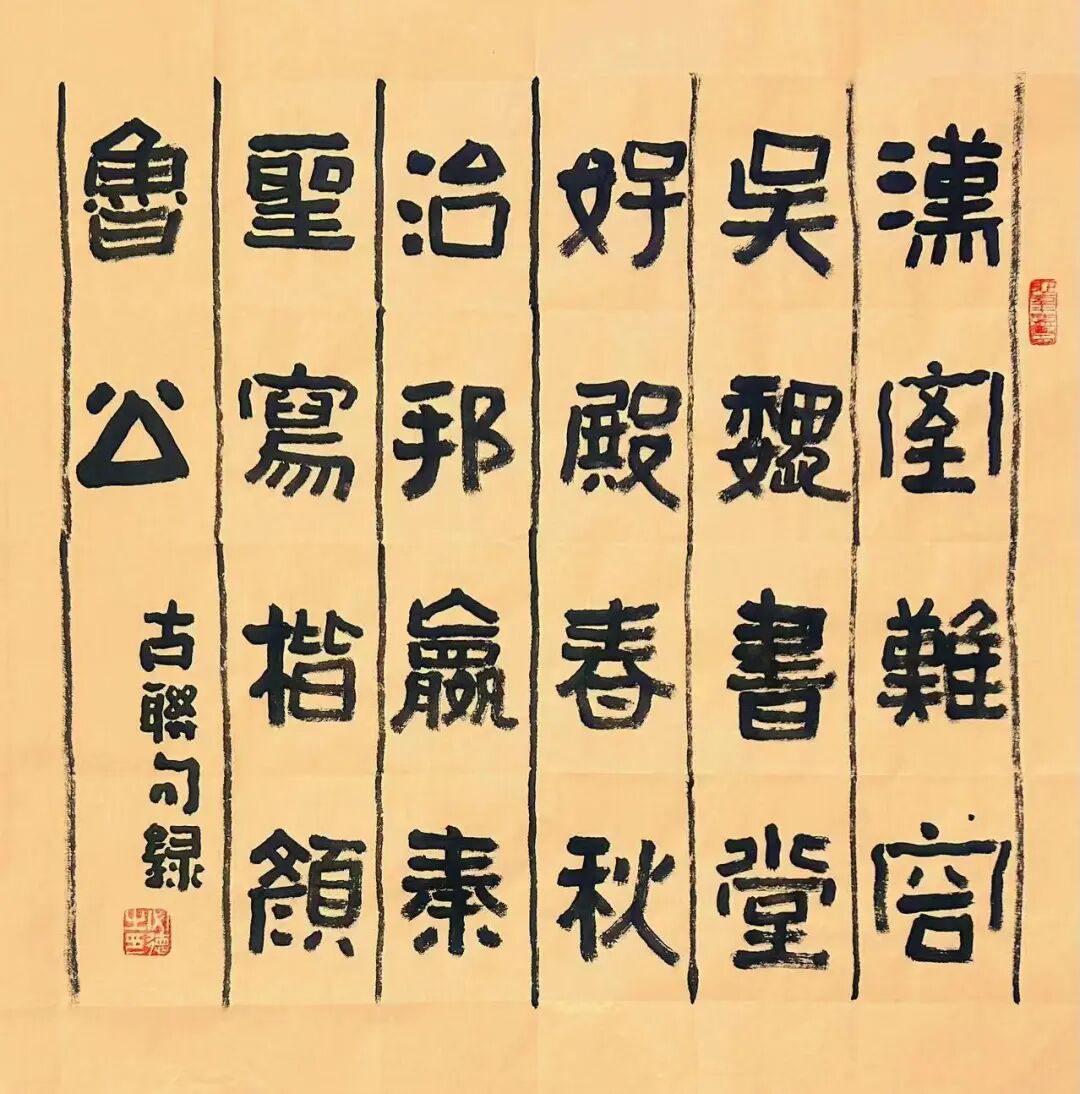 漢室難容
吳魏書堂
好殿春秋
治邦嬴秦
聖寫楷顏
魯公
古聯句録